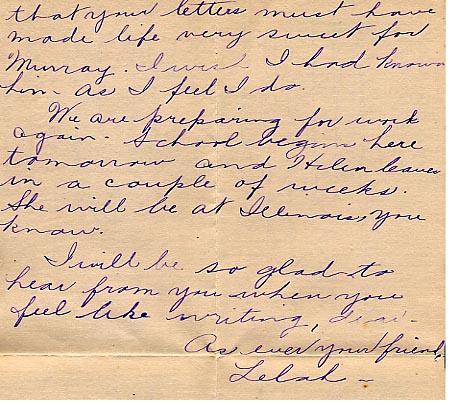 that your letters must have
made life very sweet for
Murray. I wish I had known
him as I feel I do.
We are preparing for work
again. School begins here
tomorrow and Helen leaves
in a couple of weeks.
She will be at Illinois, you
know.
I will be so glad to
hear from you when you
feel like writing, dear.
As ever your friend,
Lelah